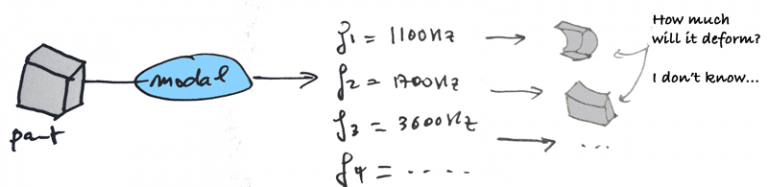 part
modal
f1 = 1100Hz
f2 = 1700Hz
f3 = 3600Hz
...
f4 = .....
How much
will it deform?
I don't know...